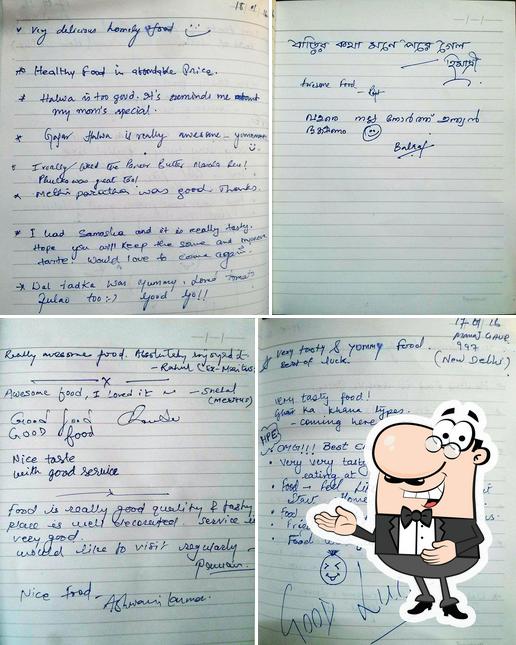 15
Very delicious homely food
Healthy Food in affordable Price.
Halwa is too good. It's reminds me about
my mom's special.
Gajar Halwa is really awesome - yummm
I really liked the Paneer Butter Masala here!
Phulka was great too!
Methi paratha was good. Thanks.
I had Samosha and it is really tasty.
Hope you will keep the same and improve
taste! Would love to come again.
Dal tadka was yummy, Loved tomato
Pulao too :-) Good Go!!
বাড়ির কথা মনে পরে গেল
হিমাদ্রী
Awesome food
വളരെ നല്ല നോർത്ത് ഇന്ത്യൻ
ഭക്ഷണം
Balraj
Really awesome food. Absolutely enjoyed it
- Rahul (Ex-
Awesome food, I loved it - Snehal
Good food
GOOD food
Nice taste
with good service
food is really good quality & tasty
place is well decorated. Service is
very good.
would like to visit regularly
Nice food - Ashwani
17-01-16
GAUR
997
(New Delhi)
very tasty & yummy food
Best of luck.
very tasty food!
Ghar ka khana types.
- coming here
OMG!!! Best
Very very tasty
eating at
Food feel
Home
Food
Food
GOOD